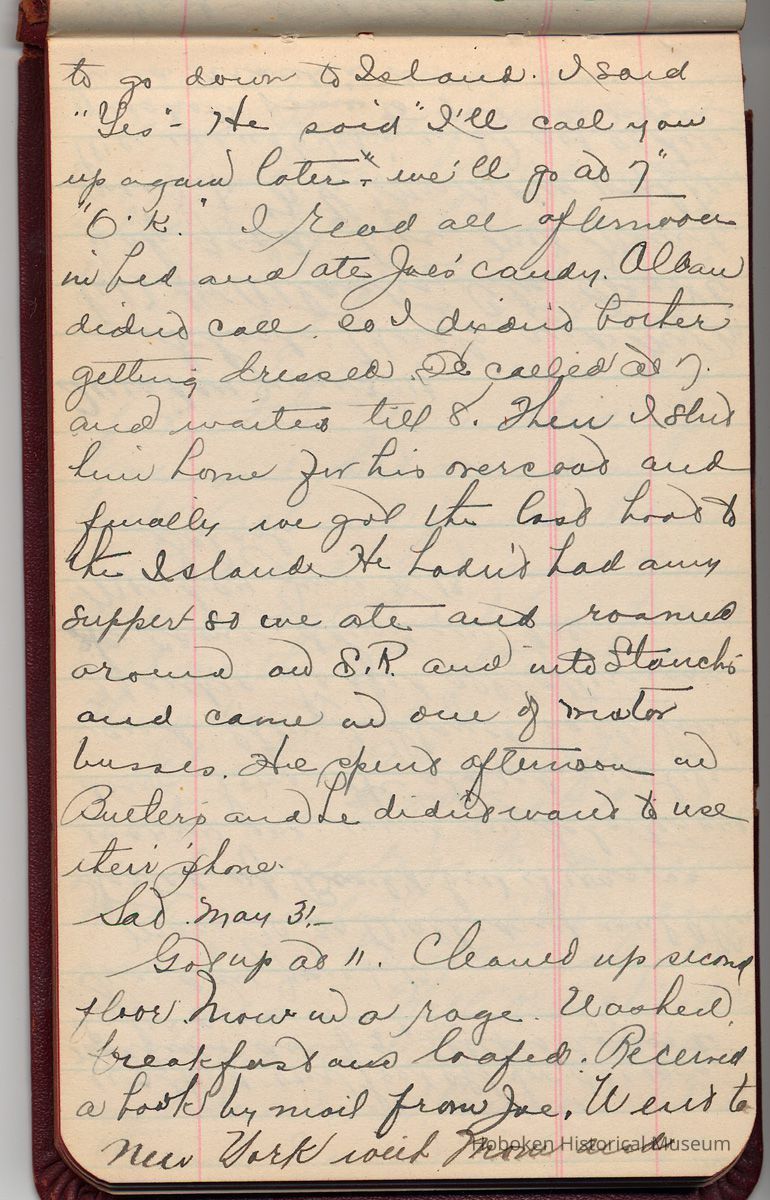 to go down to Island. I said
"Yes"- He said "I'll call you
up again later"- "we'll go at 7"
"O.K." I read all afternoon
in bed and ate Joe's candy. Alban
didn't call so I didn't bother
getting dressed. He called at 7.
and waited till 8. Then I
him home for his overcoat and
finally we got the last boat to
the Island. He hadn't had any
supper so we ate and roamed
around at S.P. and into Stanch's
and came in one of motor
busses. He spent afternoon at
Butler's and he didn't want to use
their 'phone.
Sat. May 31-
Got up at 11. Cleaned up second
floor. Mom in a rage. Washed,
breakfast and loafed. Received
a book by mail from Joe. Went to
New York with Mom and
Hoboken Historical Museum